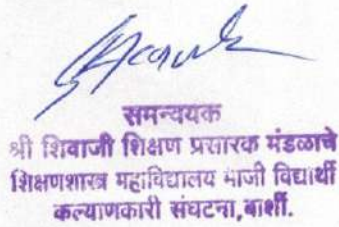 समन्वयक
श्री शिवाजी शिक्षण प्रसारक मंडळाचे
शिक्षणशास्त्र महाविद्यालय माजी विद्यार्थी
कल्याणकारी संघटना, बार्शी.